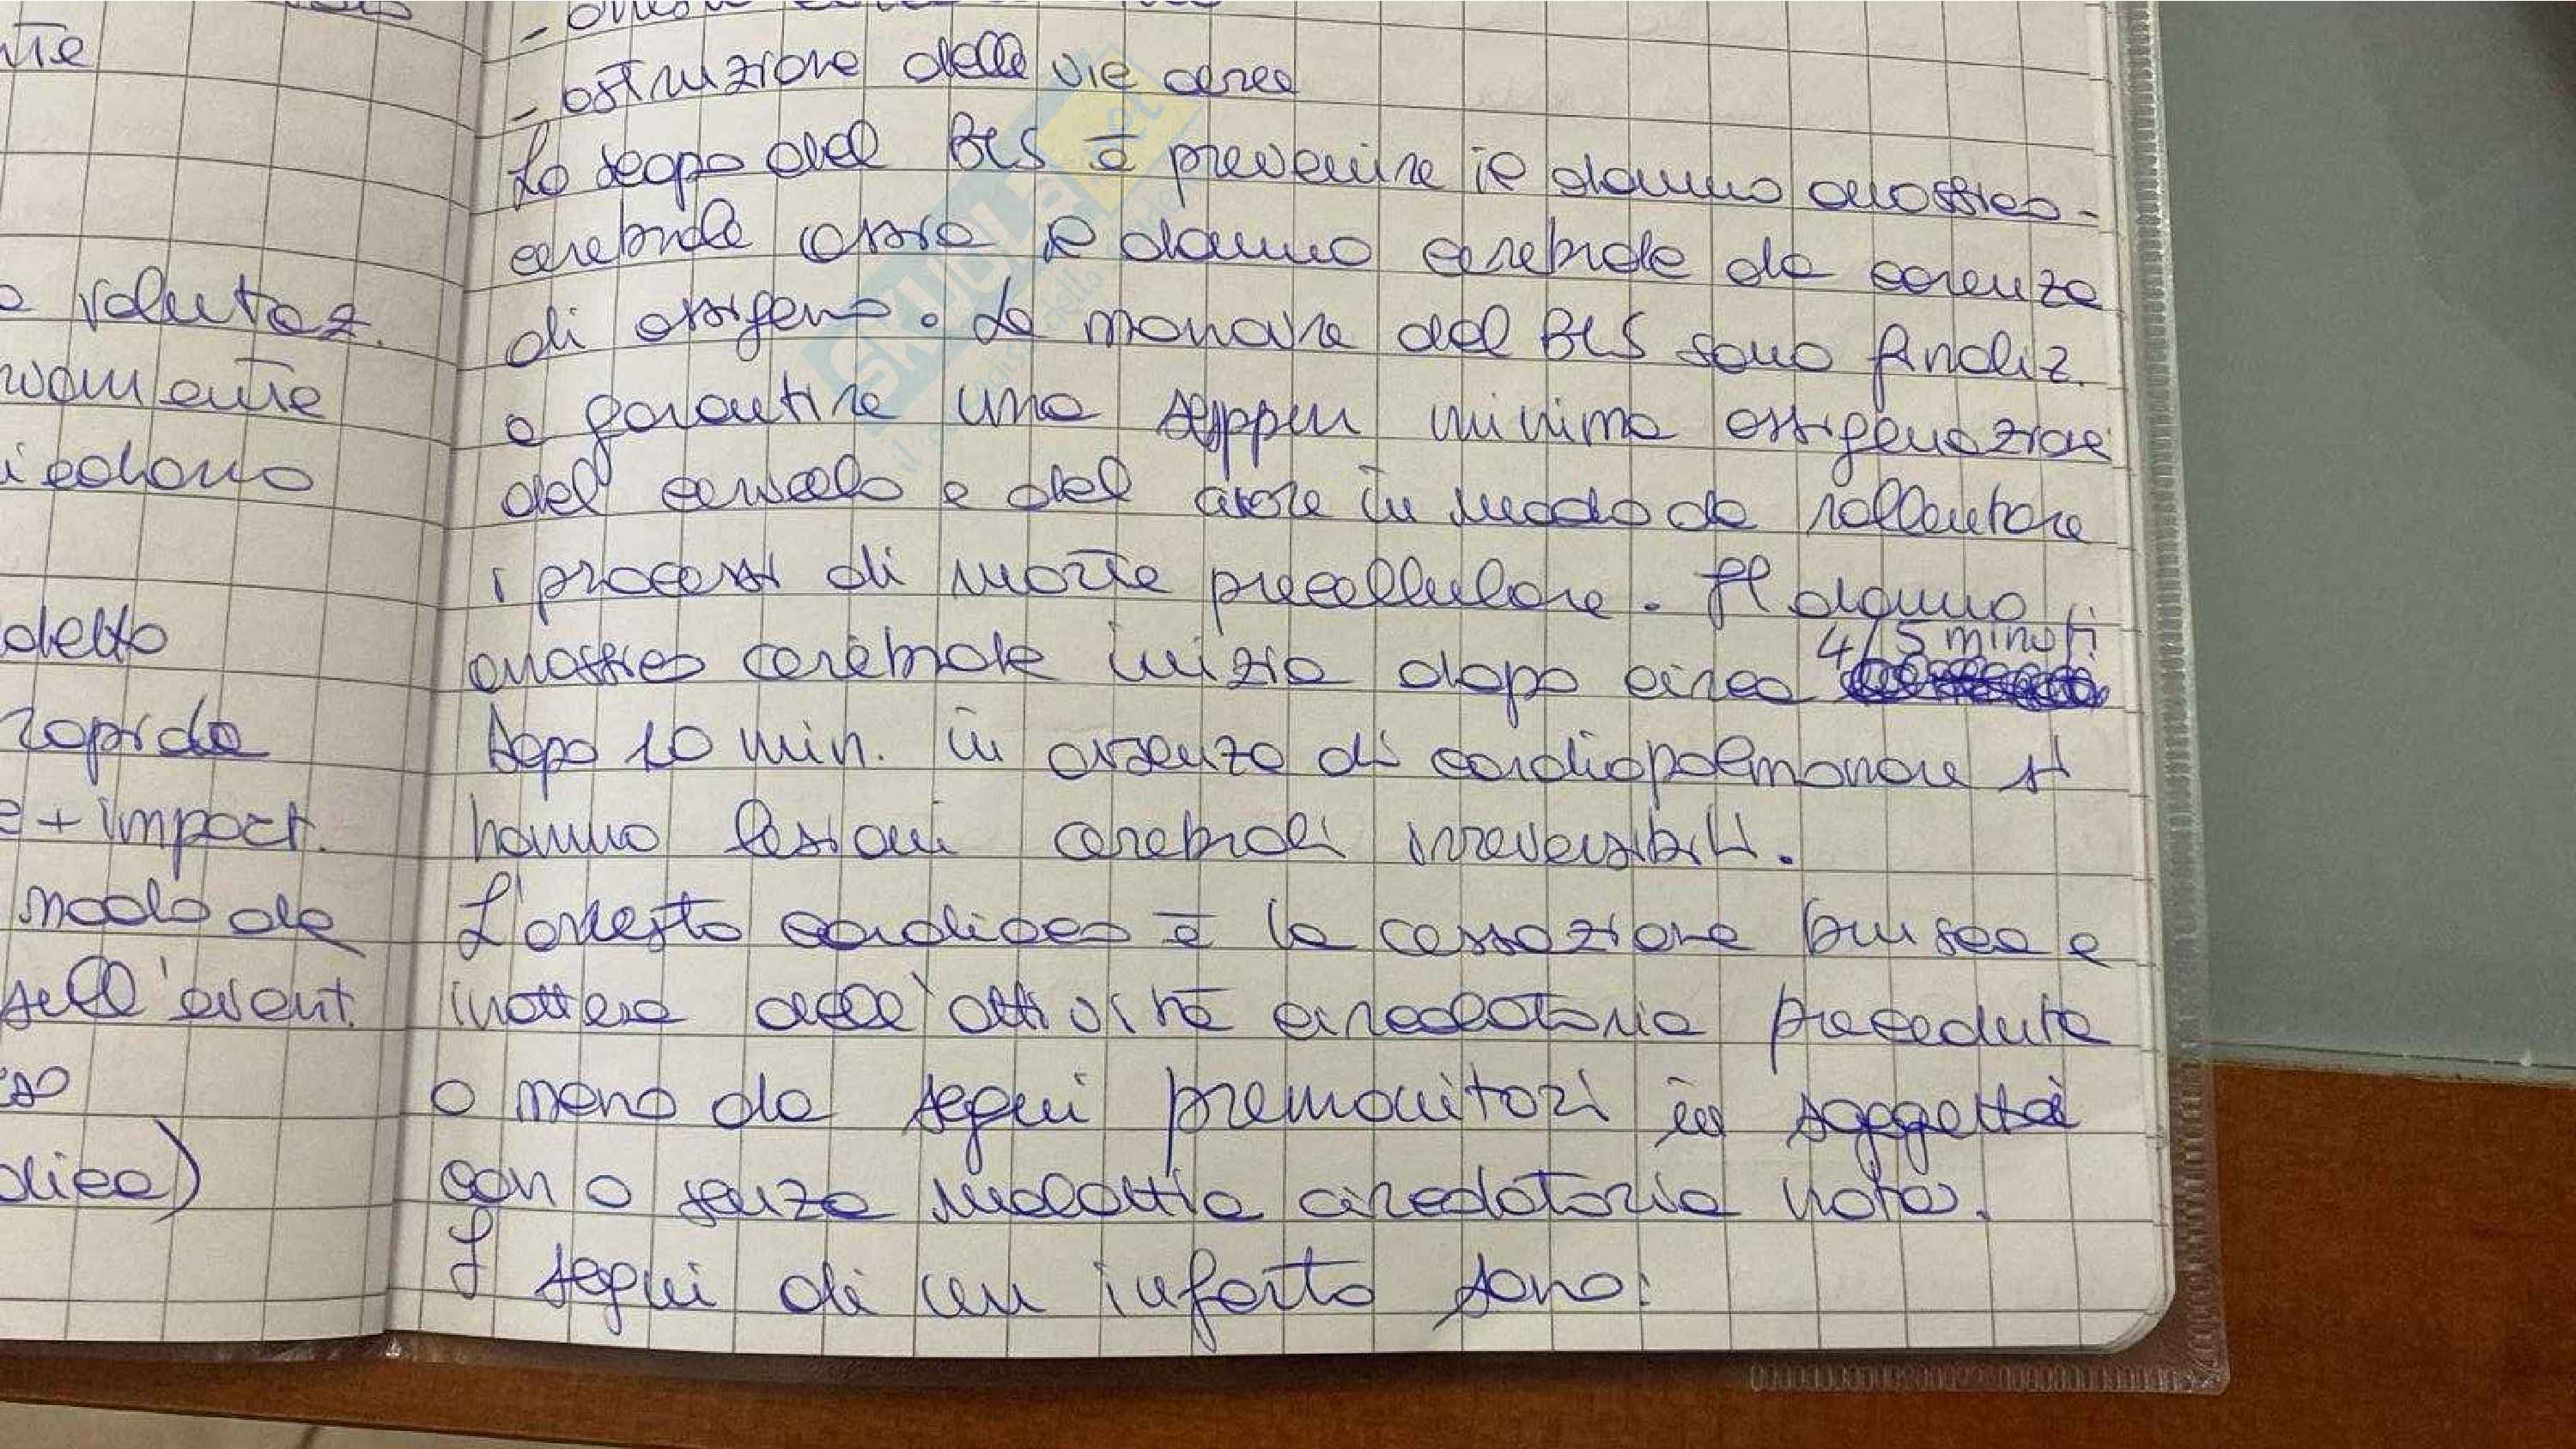 nte
a valutaz.
vamente
iedono
detto
rapida
e + import.
modo da
sull'event.
so
dica)
- ostruzione delle vie aeree
Lo scopo del BLS è prevenire il danno anossico-
cerebrale ossia il danno cerebrale da carenza
di ossigeno. Le manovre del BLS sono finaliz.
a garantire una seppur minima ossigenazione
del cervello e del cuore in modo da rallentare
i processi di morte precellulare. Il danno
anossico cerebrale inizia dopo circa 4/5 minuti
Dopo 10 min. in assenza di cardiopolmonare si
hanno lesioni cerebrali irreversibili.
L'arresto cardiaco è la cessazione brusca e
inattesa dell'attività circolatoria preceduta
o meno da segni premonitori in soggetti
con o senza malattia circolatoria nota.
I segni di un infarto sono:
SKUOLA.net